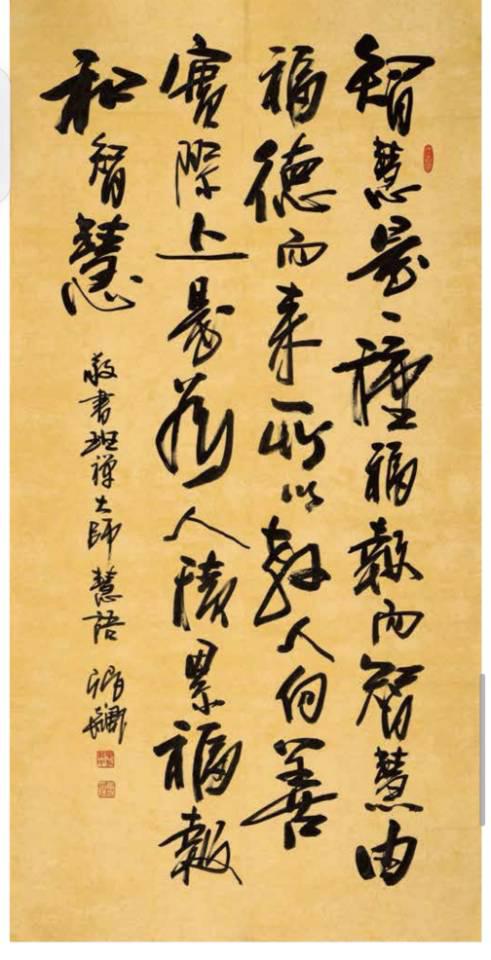 智慧是一種福報而智慧由
福德而来所以教人向善
實際上是為人積累福報
和智慧
敬書班禪大師慧語